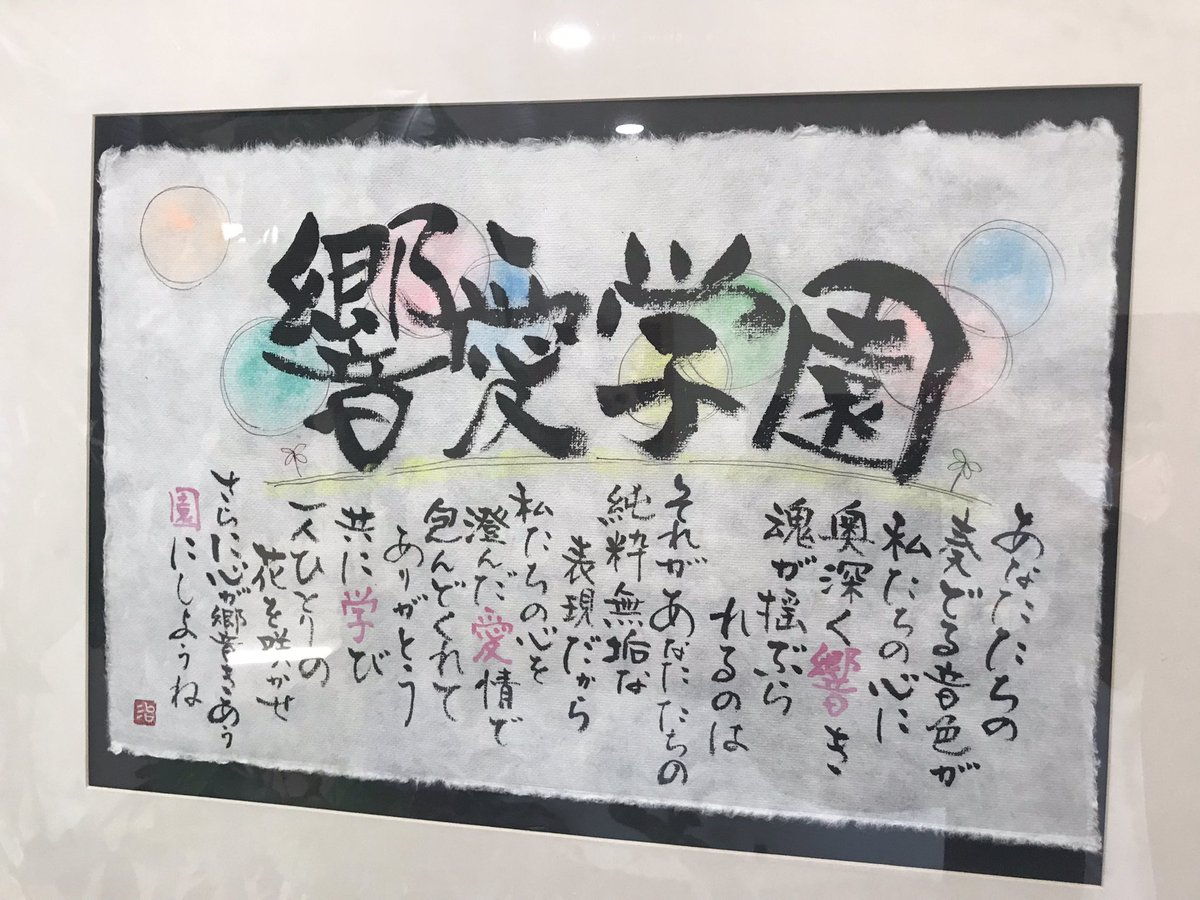 響愛学園
あなたたちの
奏でる音色が
私たちの心に
奥深く響き
魂が揺ぶら
れるのは
それがあなたたちの
純粋無垢な
表現だから
私たちの心を
澄んだ愛情で
包んでくれて
ありがとう
共に学び
一人ひとりの
花を咲かせ
さらに心が響きあう
園にしようね